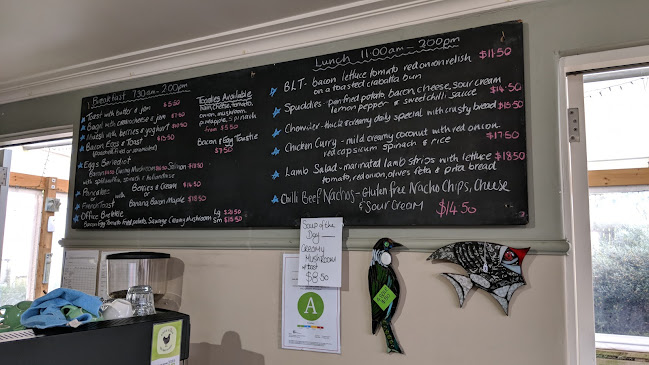 Breakfast 7.30am - 2.00pm
Toast with butter & jam $5.50
Bagel with creamcheese & jam $7.50
Muesli with berries & yoghurt
Bacon Eggs & Toast $13.50
(poached, fried or scrambled)
Eggs Benedict
Bacon Creamy Mushroom Salmon
with spinach & hollandaise
Pancakes Berries & Cream
or with or
French Toast Banana Bacon Maple
Office Breakfast Lg
Bacon Egg Tomato Fried potato, Sausage Creamy Mushroom Sm
Toasties Available
Ham, cheese, tomato,
onion, mushroom,
pineapple, spinach
from $5.50
Bacon & Egg Toastie
$7.50
Lunch 11.00am - 2.00pm
BLT - bacon lettuce tomato red onion relish $11.50
on a toasted ciabatta bun
Spuddies - pan fried potato, bacon, cheese, sour cream $14.50
lemon pepper & sweet chilli sauce
Chowder - thick & creamy daily special with crusty bread $15.50
Chicken Curry - mild creamy coconut with red onion $17.50
red capsicum spinach & rice
Lamb Salad - marinated lamb strips with lettuce $18.50
tomato, red onion, olives, feta & pita bread
Chilli Beef Nachos - Gluten free Nacho Chips, Cheese
& Sour Cream $14.50
Soup of the
Day
Creamy
Mushroom
& toast
$8.50
A